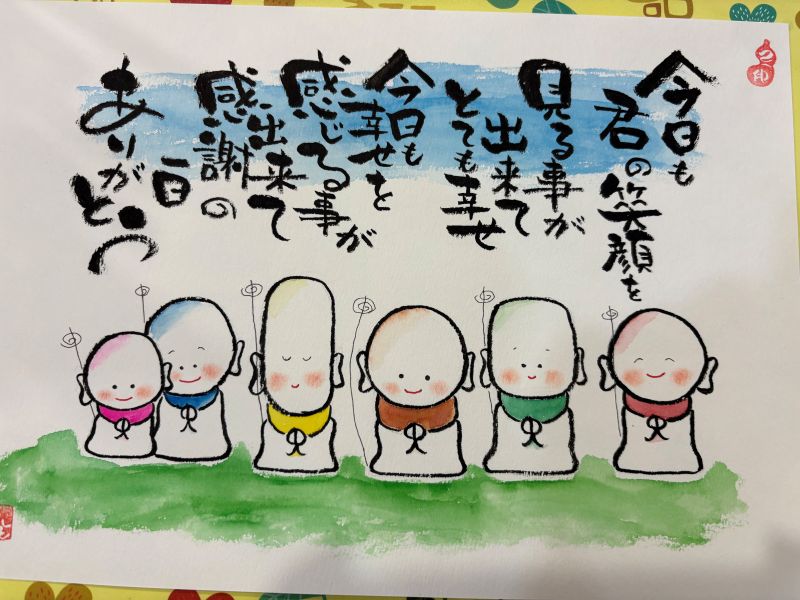 今日も
君の笑顔を
見る事が
出来て
とても幸せ
今日も
幸せを
感じる事が
出来て
感謝の
一日
ありがとう